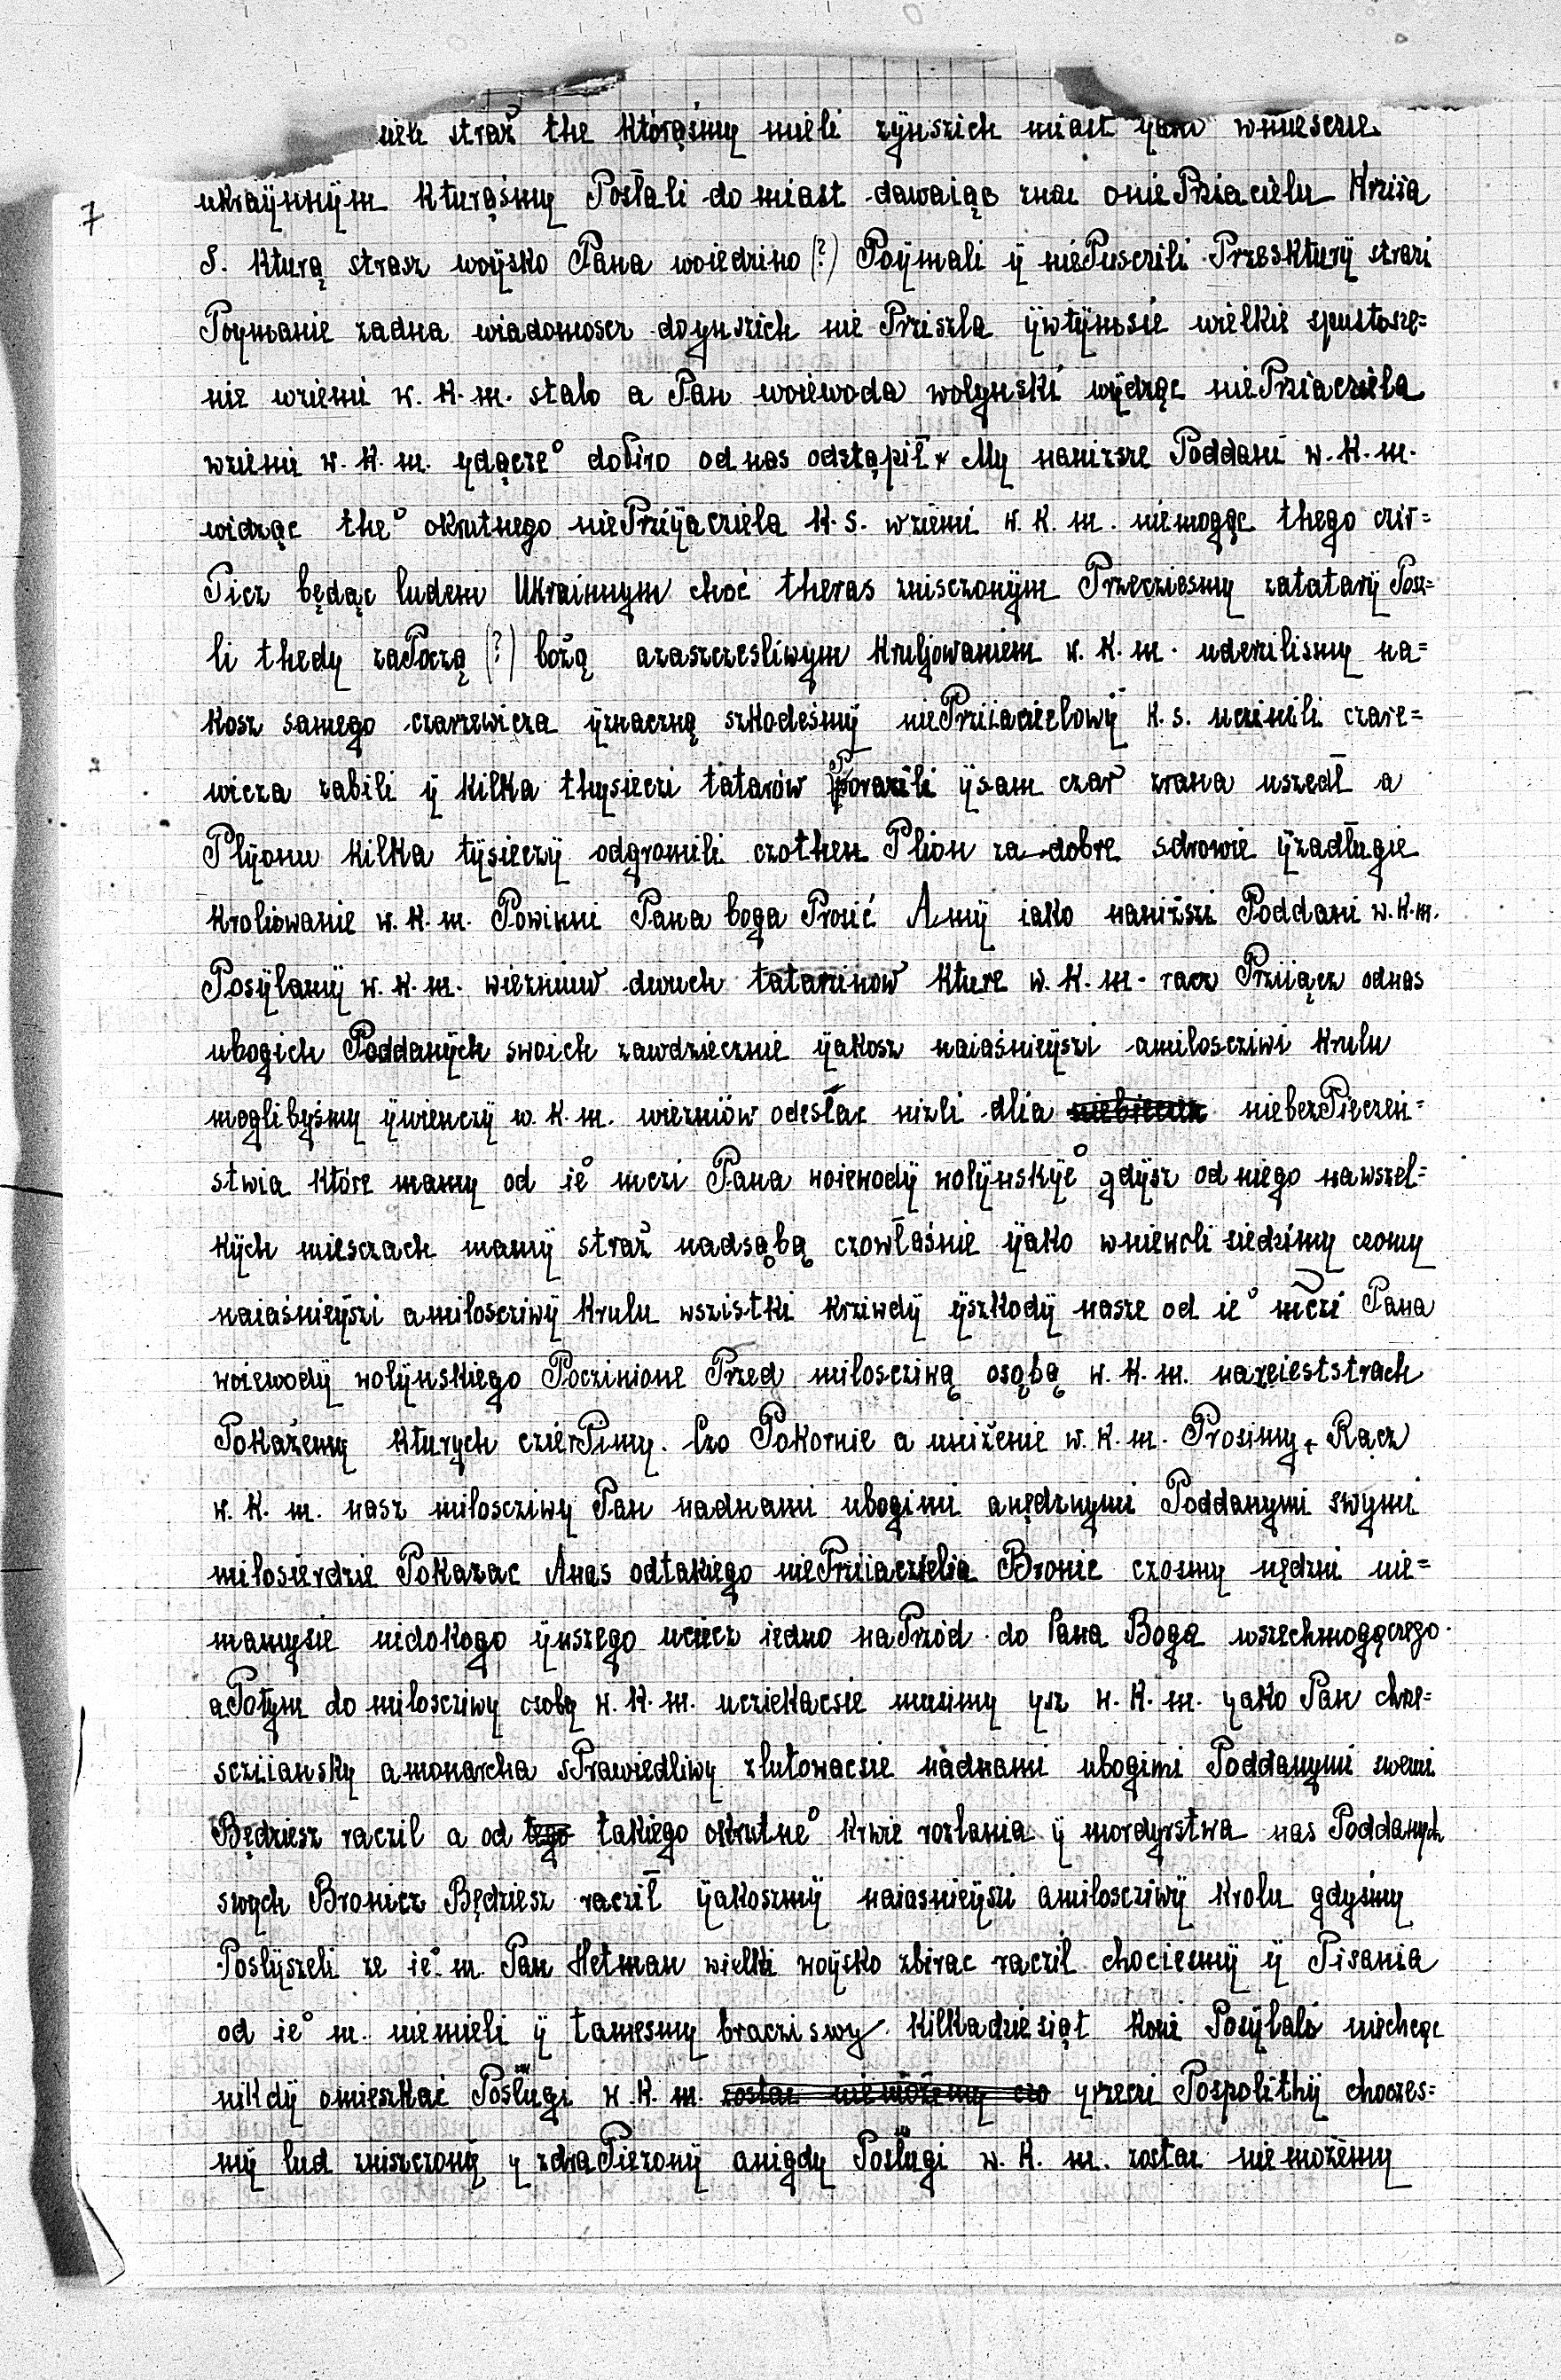 straż the którąśmy mieli zÿnszich miast ÿako wmiesczie
7
ukraÿnnÿm kturąśmy Posłali do miast dawaiąc znac onie Przia cielu Krziża
S. kturą strasz woÿsko Pana woiedzino (?) Poÿmali ÿ niePusczili Przesktury strazi
Poymanie zadna wiadomoscz doynszich nie Prziszla ÿwtÿmsie wielkie spustosze=
nie wziemi w. K. m. stalo a Pan woiewoda wolynski wÿdząc niePrziacziela
wziemi w. K. m. ydącze° dobiro od nas odstąpił My nanizsze Poddani w. K. m.
widząc the° okrutnego niePrziÿacziela K. S. wziemi w. K. m. niemogąc thego cir=
Picz będąc ludem Ukrainnym choć theras zniszczonÿm Przecziesmy zatatarÿ Posz=
li thedy zaPoczą (?) bożą azaszczesliwym Kruljowaniem w. K. m. uderzilismy na=
kosz samego czarzewicza ÿznaczną szkodeśmÿ niePrziiacielowÿ K. S. uczinili czare=
wicza zabili ÿ kilka thysieczi tatarów Porazili ÿsam czar zrana uszedł a
Plÿonu kilka tÿsieczÿ odgromili czothen Plion za dobre sdrowie ÿzadługie
kroliowanie w. K. m. Powinni Pana boga Prosić Amÿ iako naniższi Poddani w. K. m.
Posÿlamÿ w. K. m. wiezniuw dwuch tatarzinow kture w. K. m. racz Prziiącz odnas
ubogich Poddanÿch swoich zawdziecznie ÿakosz naiaśnieÿszi amilosciziwi krulu
moglibyśmy ÿwienczÿ w. K. m. wiezniów odesłac nizli dlia niebezPieczen=
stwia które mamy od ie° mczi Pana woiewodÿ wolÿnskÿe° gdÿsz od niego nawszel=
kÿch miesczach mamÿ straż nadsąbą czowłaśnie ÿako wniewoli siedzimy czomy
naiaśnieÿszi amilosciziwÿ krulu wszistki krziwdÿ ÿszkodÿ nasze od ie° mczi Pana
woiewodÿ wolÿnskiego Poczinione Przed milosciziwą osąbą w. K. m. nareieststrach
Pokażemy kturych czierPimy. Czo Pokornie a uniżenie w. K. m. Prosimy Rącz
w. K. m. nasz milosciziwy Pan nadnami ubogimi anędznymi Poddanymi swymi
milosierdzie Pokazac Anas odtakiego niePrziiaczielia Bronic czosmy nędzni nie=
mamysie nidokogo ÿnszego uciecz iedno naPrzód do Pana Boga wszechmogączego
aPotym do milosciziwy osobą w. K. m. uciekacsie musimy ysz w. K. m. yako Pan chrze=
scziiansky amonarcha sPrawiedliwy zlutowacsie nadnami ubogimi Poddanymi swemi
Będziesz raczil a od tego takiego okrutne° krwie rozlania ÿ mordyrstwa nas Poddanych
swych Bronicz Będziesz raczil ÿakoszmÿ naiasnieÿszi amilosciziwÿ krolu gdyśmy
Poslÿszeli ze ie° m. Pan Hetman wielki woÿsko zbirac raczil chociesmÿ ÿ Pisania
od ie° m. niemieli ÿ tamesmy braczi swy kilkadziesiąt koni Posÿlali niechcąc
nikdÿ omieszkać Poslugi w. K. m. zostac niemożemy czo yrzeczi Pospolithÿ choczes=
mÿ lud zniszczonÿ y zdraPiezonÿ anigdy Poslugi w. K. m. zostac niemożemy